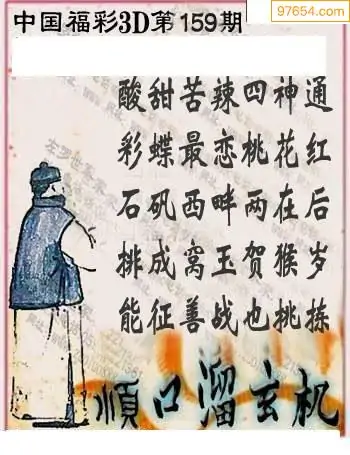 97654.com
中国福彩3D第159期
酸甜苦辣四神通
彩蝶最恋桃花红
石矶西畔两在后
排成窝玉贺猴岁
能征善战也挑拣
顺口溜玄机